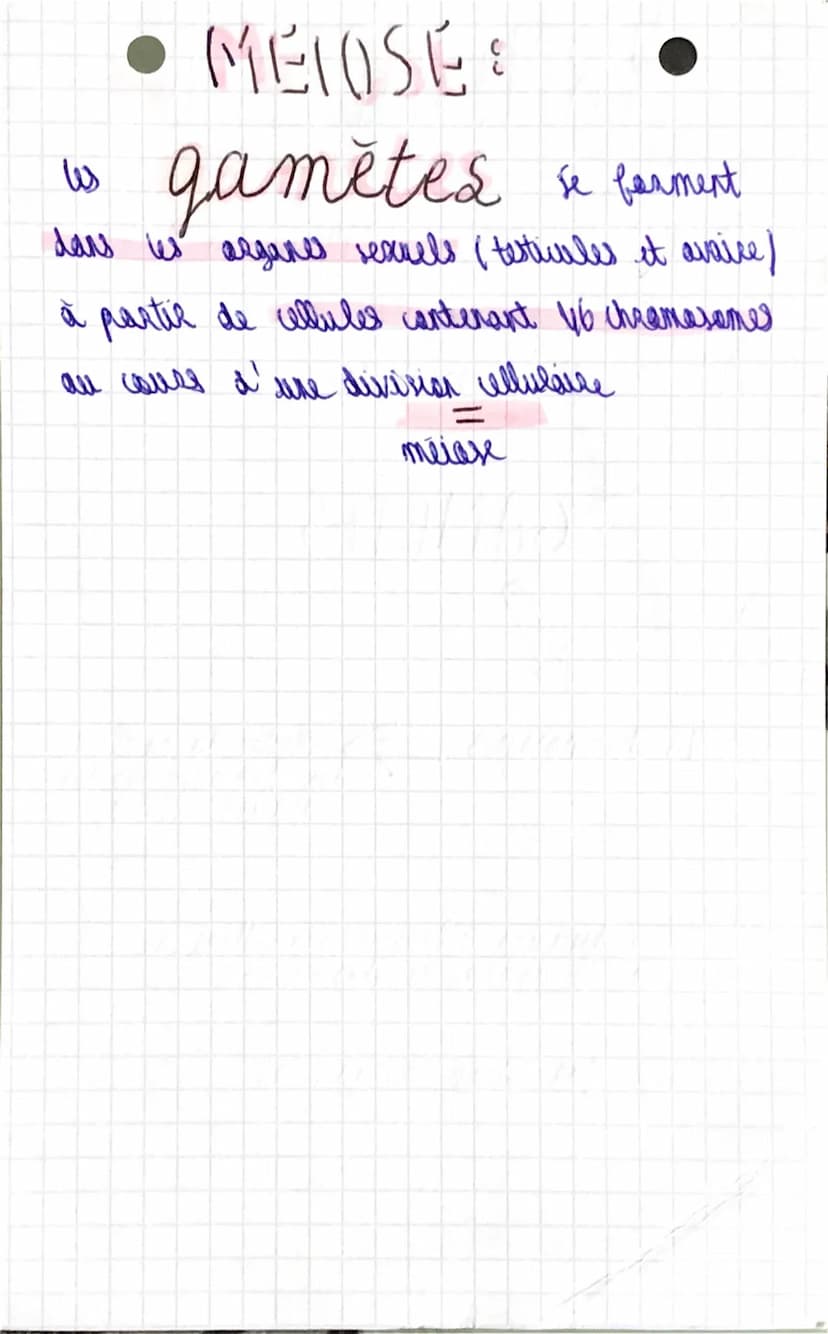 MÉIOSE :
les gamètes se forment
dans les organes sexuels (testicules et ovaire)
à partir de cellules contenant 46 chromosomes
au cours d'une division cellulaire
=
méiose